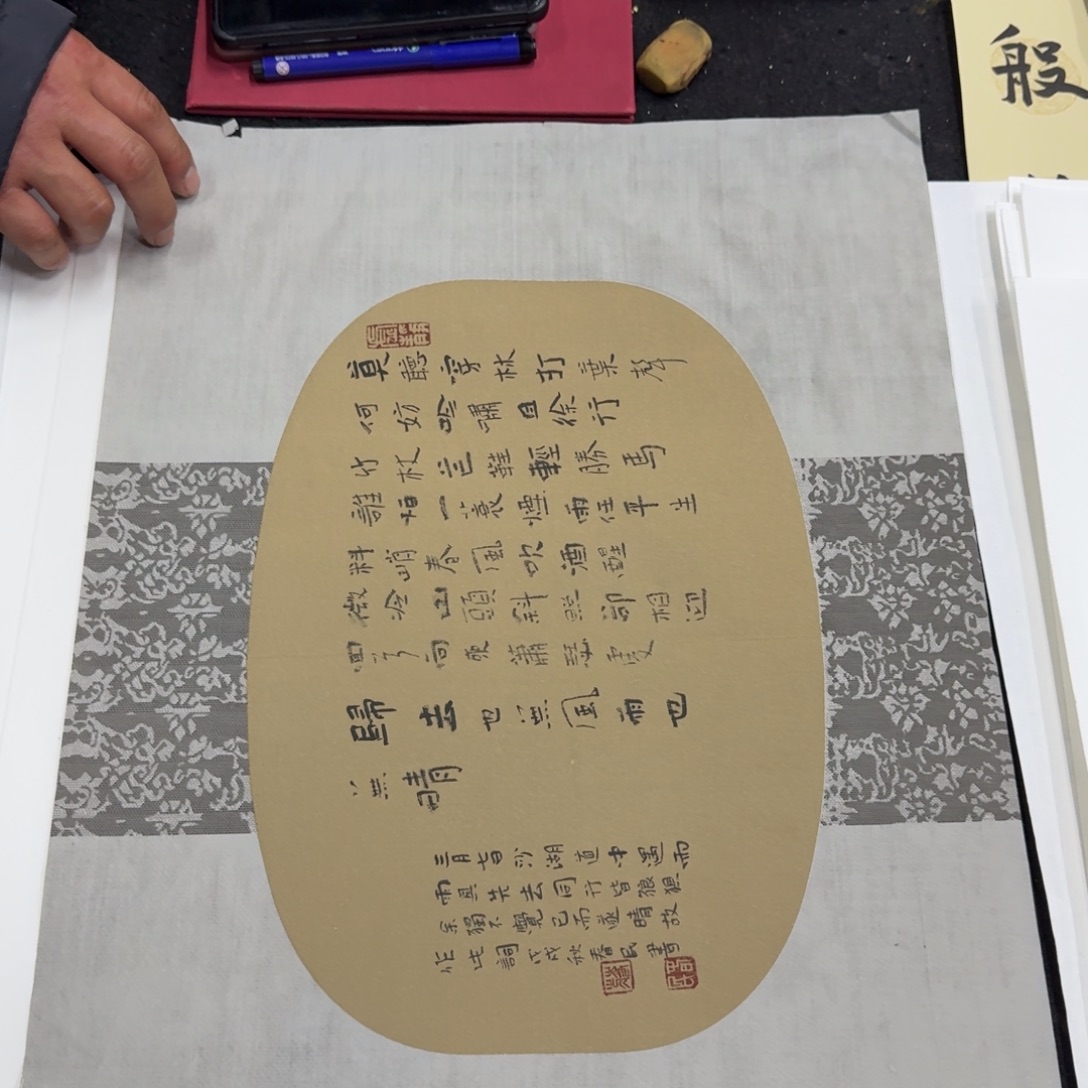 莫聽穿林打葉聲
何妨吟嘯且徐行
竹杖芒鞋輕勝馬
誰怕一蓑煙雨任平生
料峭春風吹酒醒
微冷山頭斜照卻相迎
回首向來蕭瑟處
歸去也無風雨也
無晴
三月七日沙湖道中遇雨
雨具先去同行皆狼狽
余獨不覺已而遂晴故
作此詞戊戌秋春民書
般